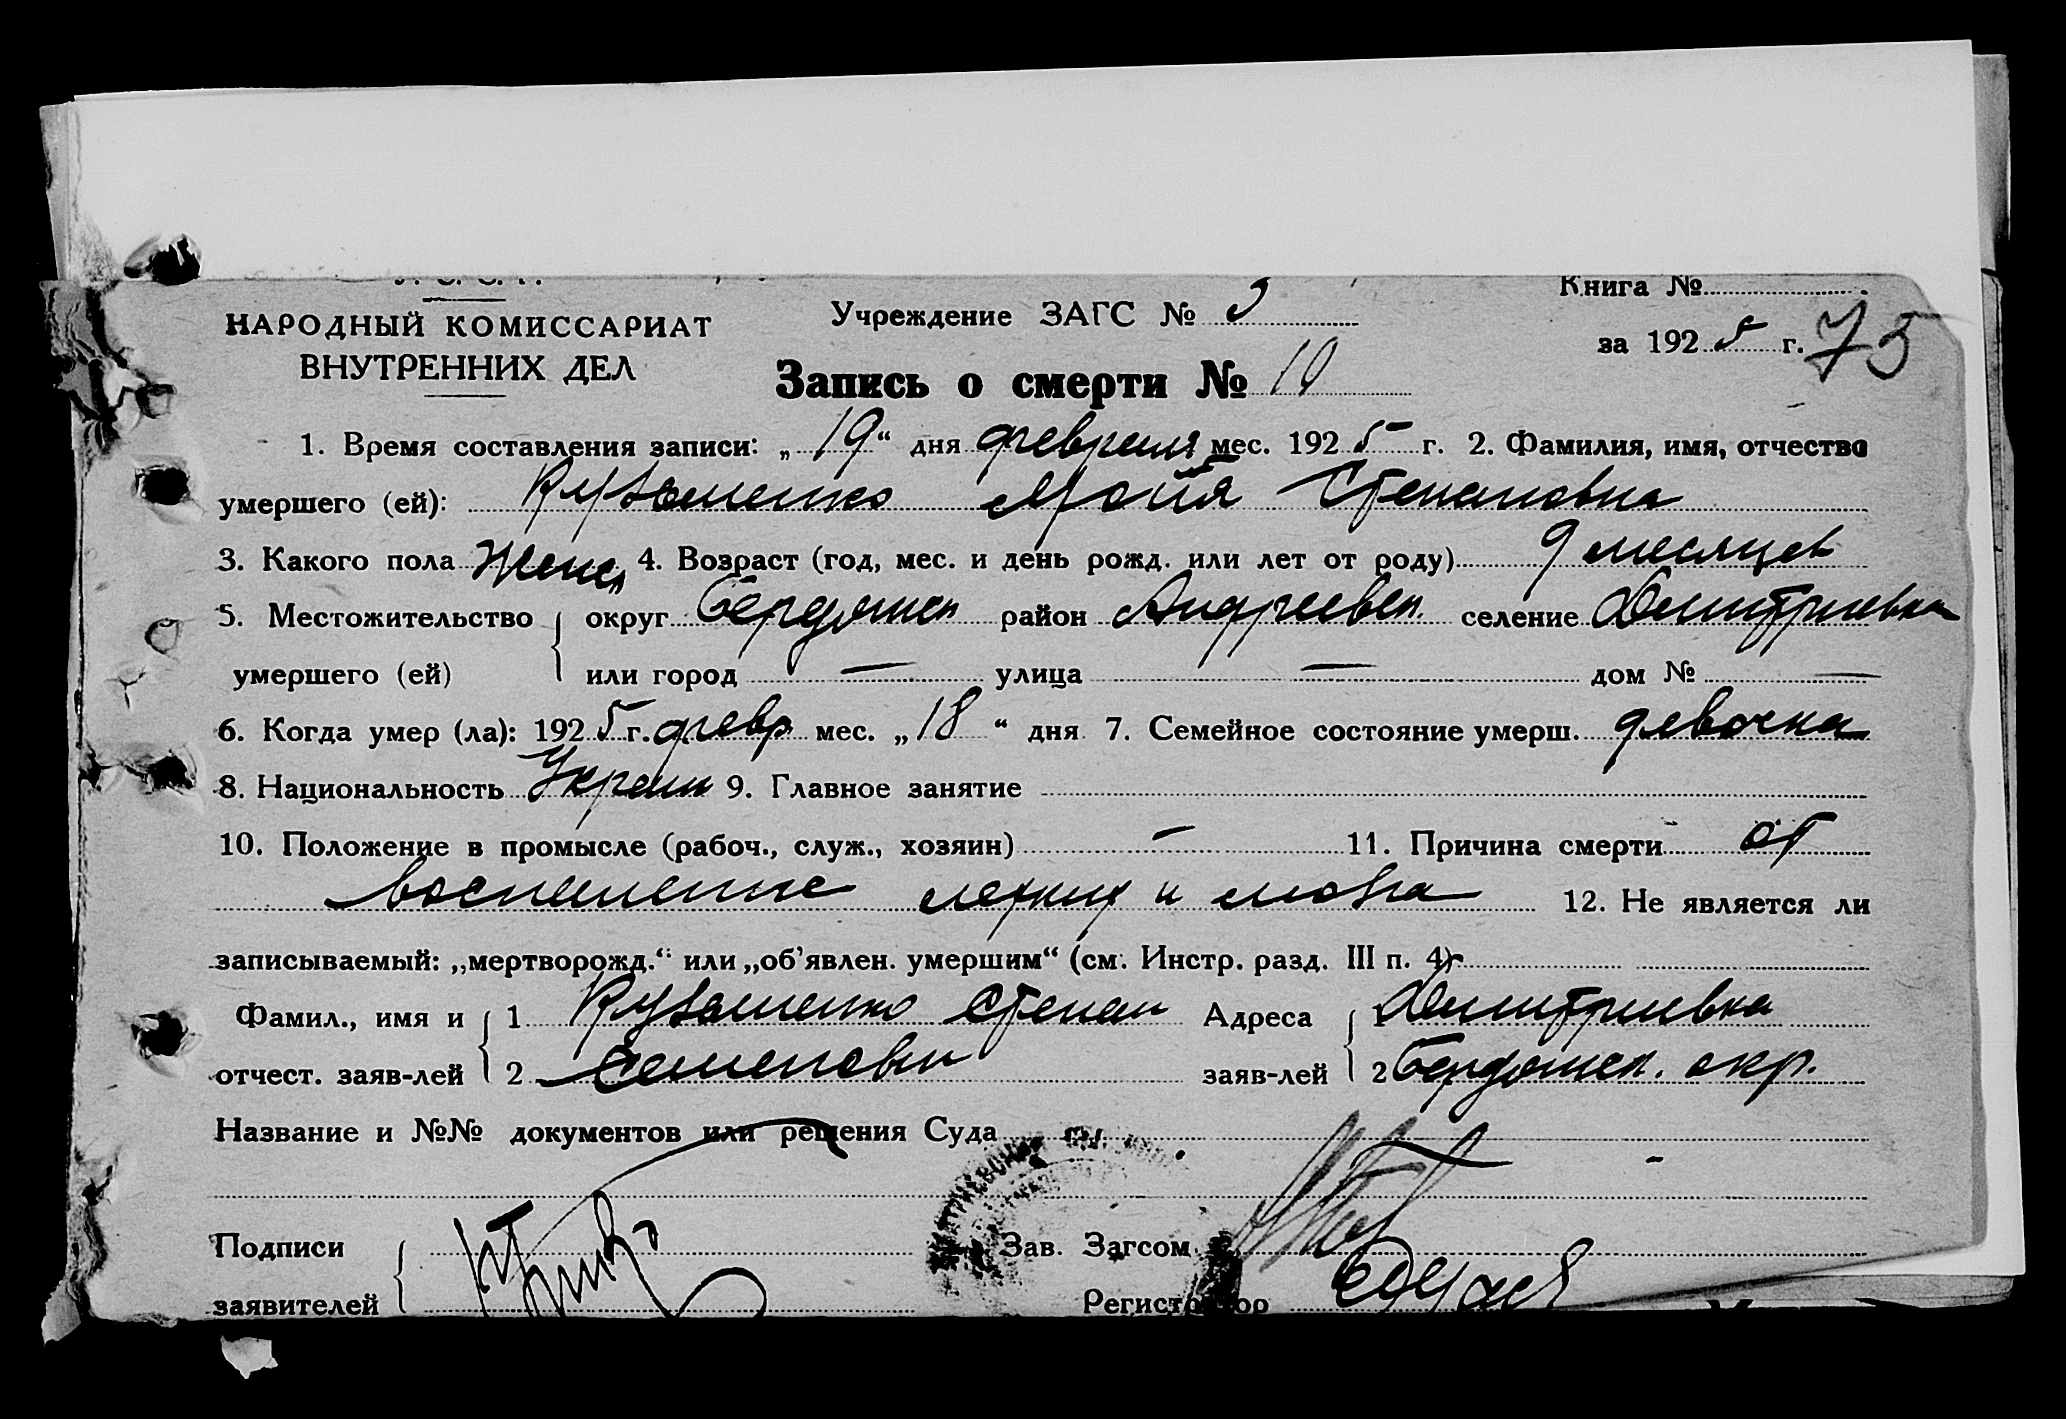 Книга №
НАРОДНЫЙ КОМИССАРИАТ Учреждение ЗАГС № 3 за 1925 г. 75
ВНУТРЕННИХ ДЕЛ
Запись о смерти № 10
1. Время составления записи: „19“ дня февраля мес. 1925 г. 2. Фамилия, имя, отчество
умершего (ей): Кузьменко Степановна
3. Какого пола Женс, 4. Возраст (год, мес. и день рожд. или лет от роду) 9 месяцев
5. Местожительство округ Бердянск район Андреевск. селение Дмитриевка
умершего (ей) или город — улица — дом № —
6. Когда умер (ла): 1925 г. февр мес. „18“ дня 7. Семейное состояние умерш. девочка
8. Национальность Украин 9. Главное занятие
10. Положение в промысле (рабоч., служ., хозяин) — 11. Причина смерти от
воспаление легких и мозга 12. Не является ли
записываемый: „мертворожд.“ или „об’явлен. умершим“ (см. Инстр. разд. III п. 4)
Фамил., имя и 1 Кузьменко Степан Адреса 1 Дмитриевка
отчест. заяв-лей 2 Семенович заяв-лей 2 Бердянск. окр.
Название и №№ документов или решения Суда
Подписи Зав. Загсом
заявителей Регистратор